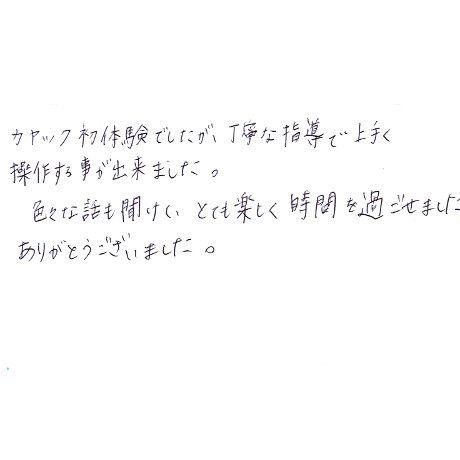 カヤック初体験でしたが、丁寧な指導で上手く
操作する事が出来ました。
色々な話も聞けて、とても楽しく時間を過ごせました
ありがとうございました。